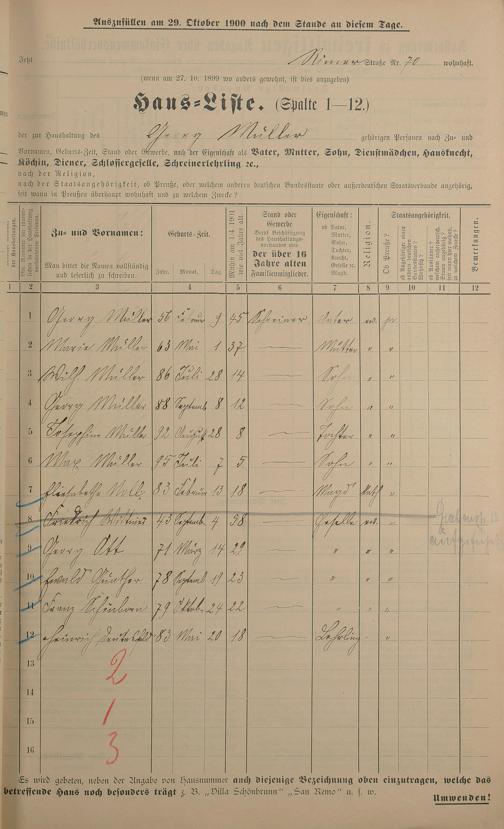 Auszufüllen am 29. Oktober 1900 nach dem Stande an diesem Tage.
Jetzt Straße Nr. 70 wohnhaft.
(wenn am 27. 10. 1899 wo anders gewohnt, ist dies anzugeben)
Haus-Liste. (Spalte 1—12.)
der zur Haushaltung des Georg Müller gehörigen Personen nach Zu- und
Vornamen, Geburts-Zeit, Stand oder Gewerbe, nach der Eigenschaft als Vater, Mutter, Sohn, Dienstmädchen, Hausknecht,
Köchin, Diener, Schlossergeselle, Schreinerlehrling ꝛc.,
nach der Religion,
nach der Staatsangehörigkeit, ob Preuße, oder welchem anderen deutschen Bundesstaate oder außerdeutschen Staatsverbande angehörig,
seit wann in Preußen überhaupt wohnhaft und zu welchem Zwecke?
Zu- und Vornamen:
Man bittet die Namen vollständig und leserlich zu schreiben.
Geburts-Zeit.
Jahr. Monat. Tag.
Stand oder Gewerbe
der über 16 Jahre alten Familienmitglieder.
Eigenschaft:
ob Vater, Mutter, Sohn, Tochter, Knecht, Geselle ꝛc. Magd.
Religion.
Staatsangehörigkeit.
Ob Preuße?
Bemerkungen.
1 2 3 4 5 6 7 8 9 10 11 12
1 Georg Müller 56 Februar 9 45 Schreiner Vater ev. pr
2 Marie Müller 63 Mai 1 37 — Mutter " "
3 Wilh Müller 86 Juli 28 14 — Sohn " "
4 Georg Müller 88 Septemb 8 12 — Sohn " "
5 Josephine Müller 92 August 28 8 — Tochter " "
6 Max Müller 95 Juli 7 5 — Sohn " "
7 Elisabetha 83 Februar 13 18 — Magd Kath "
8 Friedrich 43 Septemb 4 58 — Geselle ev. "
9 Georg Ott 71 März 14 29 — " " "
10 Ewald Günther 78 Septemb 19 23 — " " "
11 Franz Schönborn 79 Oktob. 24 22 — " " "
12 Heinrich 83 Mai 20 18 — Lehrling " "
13
14
15
16
2
1
3
Es wird gebeten, neben der Angabe von Hausnummer auch diejenige Bezeichnung oben einzutragen, welche das
betreffende Haus noch besonders trägt z. B. "Villa Schönbrunn" "San Remo" u. s. w.
Umwenden!